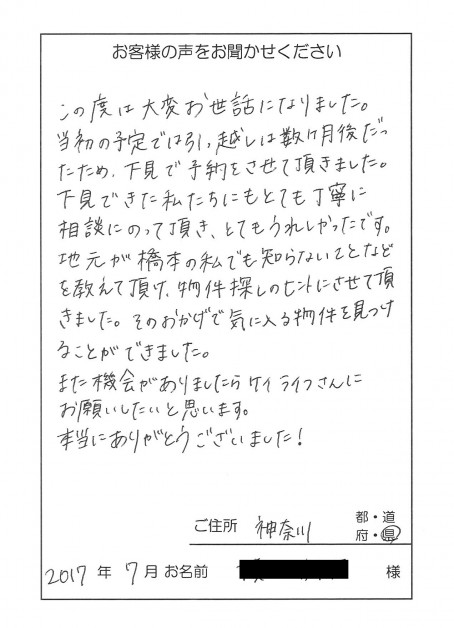 お客様の声をお聞かせください
この度は大変お世話になりました。
当初の予定では引っ越しは数ヶ月後だっ
たため、下見で予約をさせて頂きました。
下見できた私たちにもとても丁寧に
相談にのって頂き、とてもうれしかったです。
地元が橋本の私でも知らないことなど
を教えて頂け、物件探しのヒントにさせて頂
きました。そのおかげで気に入る物件を見つけ
ることができました。
また機会がありましたらケイライフさんに
お願いしたいと思います。
本当にありがとうございました!
ご住所 神奈川 都・道
府・県
2017 年 7 月 お名前 様